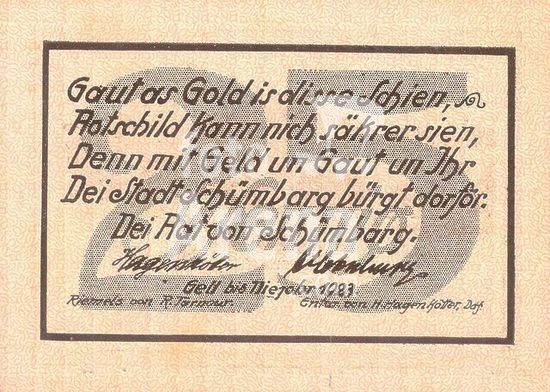 Gaut as Gold is disse Schien,
Rotschild Kann nich säkrer sien,
Denn mit Geld un Gaut un Ihr
Dei Stadt Schümbarg bürgt dorför.
Dei Rat von Schümbarg.
Gell bis Niejohr 1923
Riemels von R. Tarnour. Entw. von H. Hagenkötter, Ddf.
25